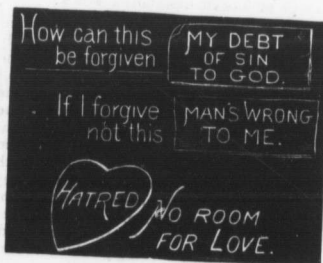 How can this
be forgiven
MY DEBT
OF SIN
TO GOD.
If I forgive
not this
MAN'S WRONG
TO ME.
HATRED
NO ROOM
FOR LOVE.